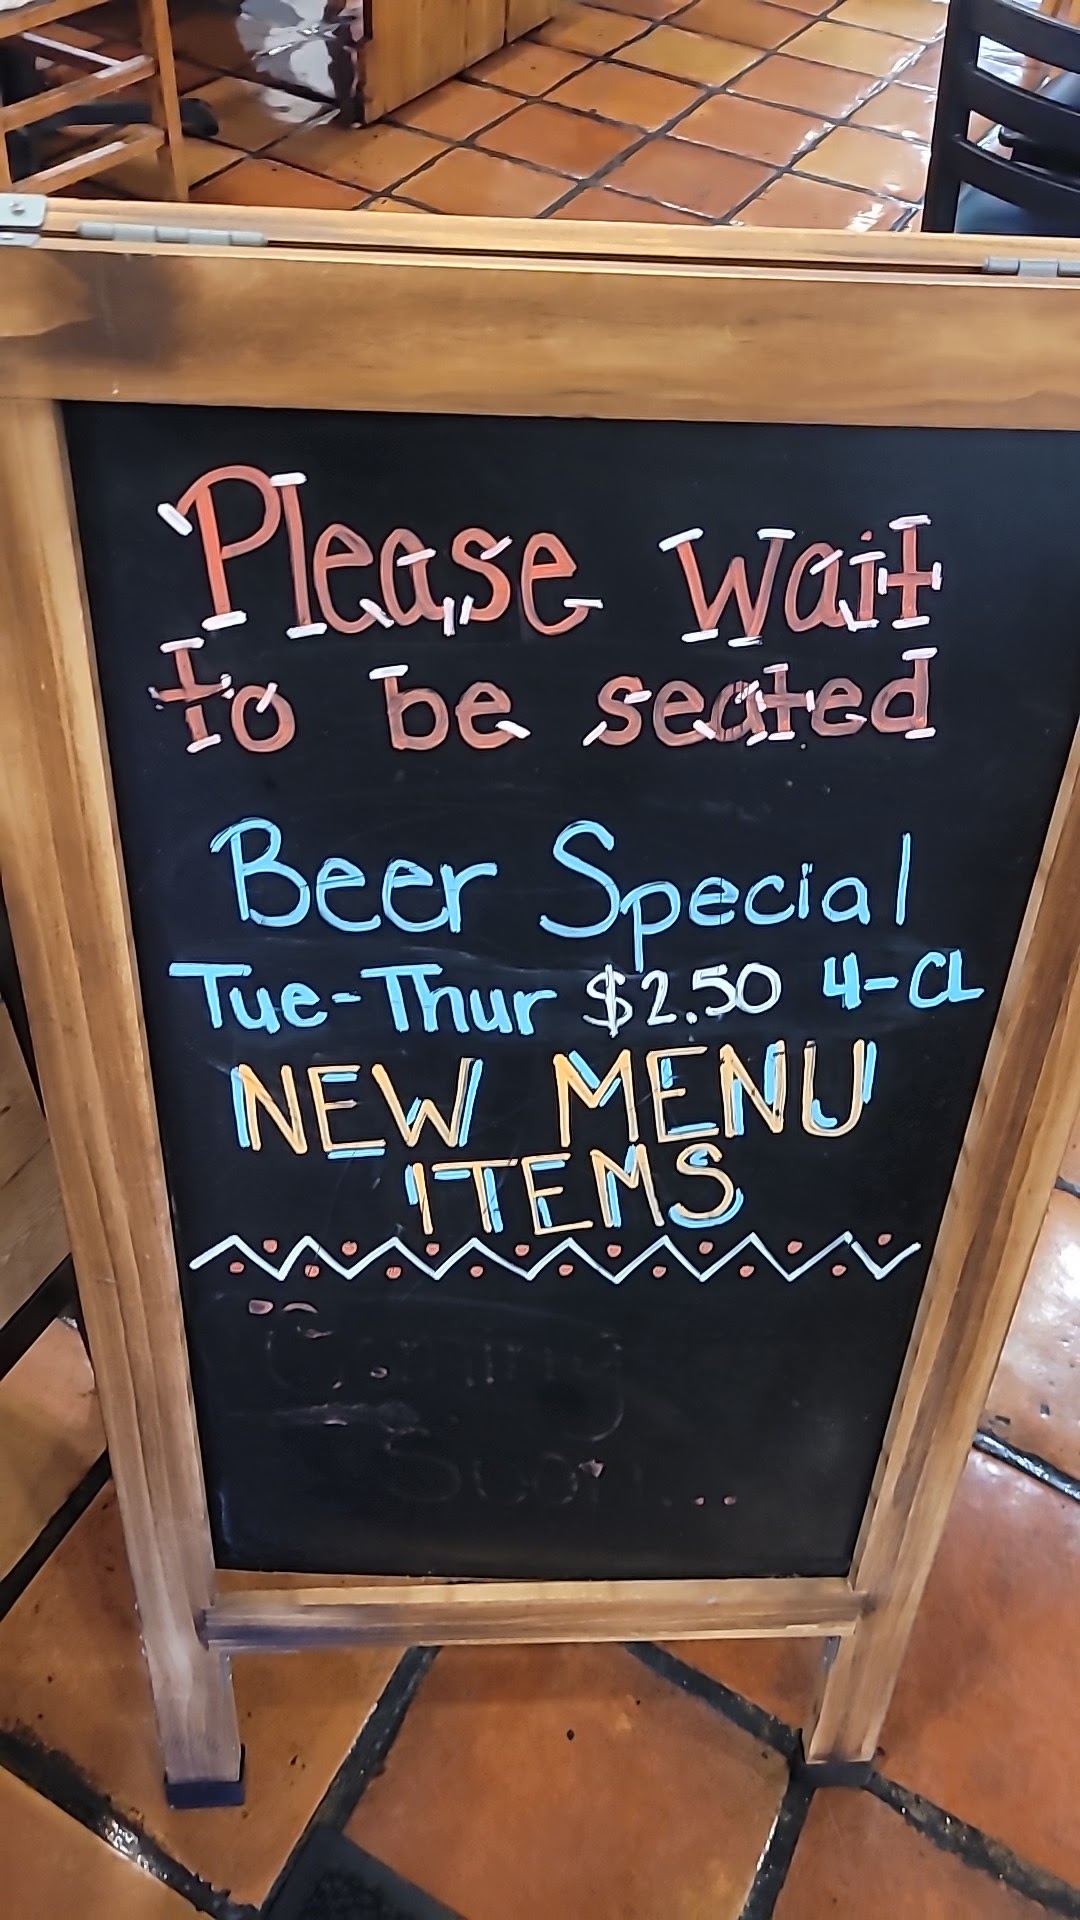 Please wait
to be seated
Beer Special
Tue-Thur $2.50 4-CL
NEW MENU
ITEMS
Coming
Soon...